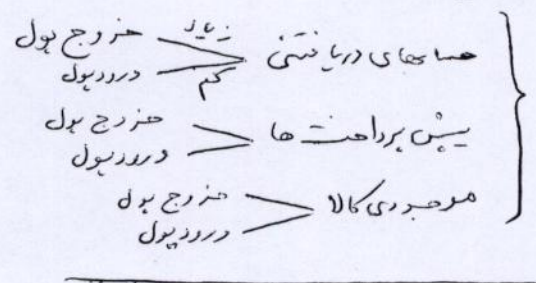 حسابهای دریافتنی زیاد خروج پول
کم ورود پول
پیش پرداخت ها خروج پول
ورود پول
موجودی کالا خروج پول
ورود پول